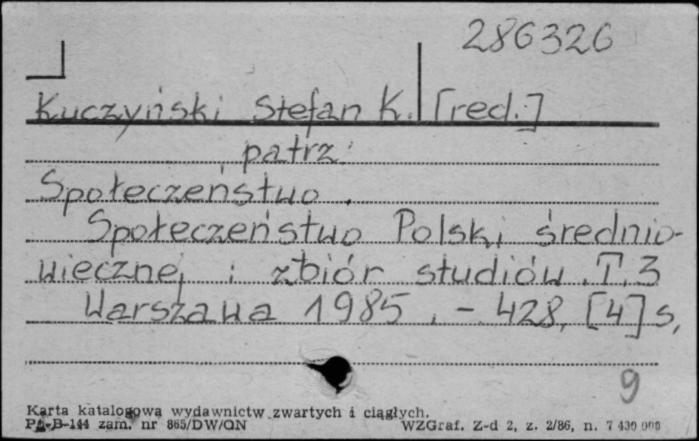 286326
Kuczyński Stefan K. [red.]
patrz:
Społeczeństwo.
Społeczeństwo Polski średnio-
wiecznej : zbiór studiów. T. 3
Warszawa 1985. - 428, [4] s.
9
Karta katalogowa wydawnictw zwartych i ciągłych.
Pu-B-144 zam. nr 865/DW/ON WZGraf. Z-d 2, z. 2/86, n. 7 430 000